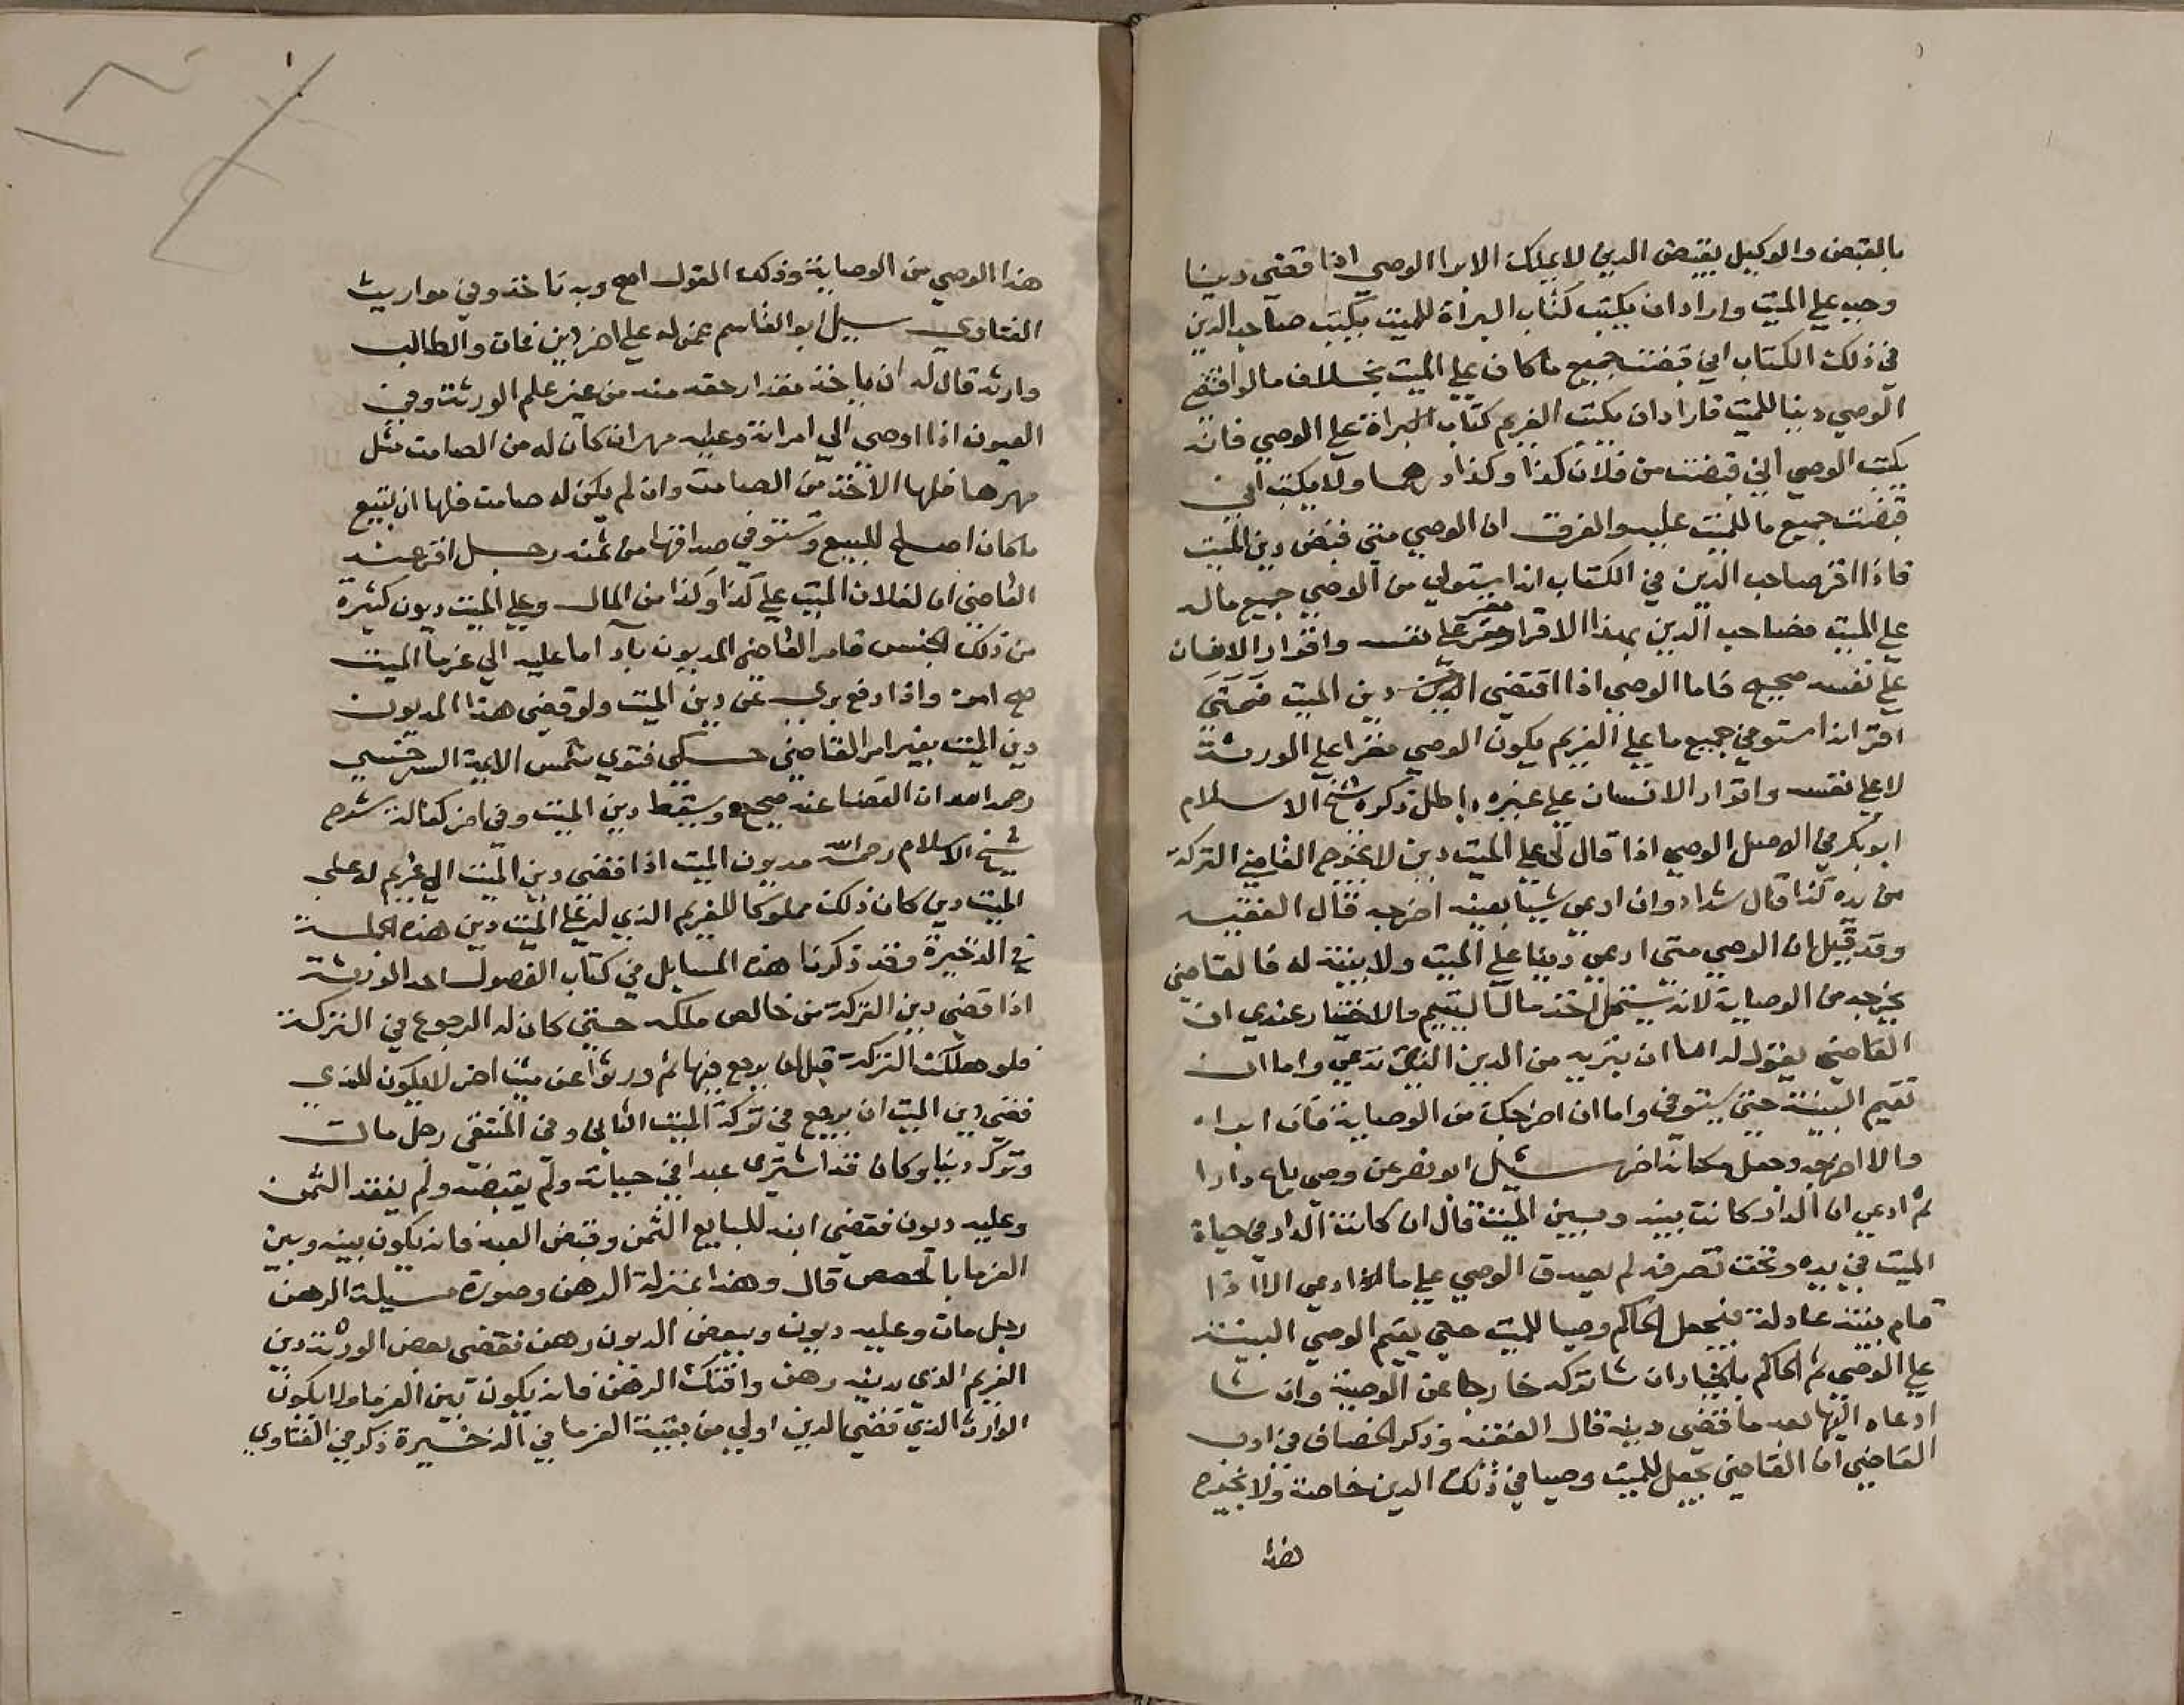 بالقبض والوكيل بقبض الدين لا يملك الابرا الوصي اذا قضي دينا
وجب علي الميت واراد ان يكتب كتاب البراة للميت يكتب صاحب الدين
في ذلك الكتاب اني قبضت جميع ما كان علي الميت بخلاف ما لو اقتضي
الوصي دينا للميت فاراد ان يكتب الغريم كتاب البراة علي الوصي فانه
يكتب الوصي اني قبضت من فلان كذا وكذا درهما ولا يكتب اني
قبضت جميع ما للميت عليه والفرق ان الوصي متي قبض دين الميت
فاذا اقر صاحب الدين في الكتاب انه استوفي من الوصي جميع ماله
علي الميت فصاحب الدين بهذا الاقرار مقر علي نفسه واقرار الانسان
علي نفسه صحيح فاما الوصي اذا اقتضي دين الميت فمتي
اقر انه استوفي جميع ما علي الغريم يكون الوصي مقرا علي الورثة
لا علي نفسه واقرار الانسان علي غيره باطل ذكره شيخ الاسلام
ابو بكر في الاصل الوصي اذا قال لي علي الميت دين لا يخرج القاضي التركة
من يده كذا قال شداد وان ادعي شيئا بعينه اخرجه قال الفقيه
وقد قيل ان الوصي متي ادعي دينا علي الميت ولا بينة له فالقاضي
يخرجه من الوصاية لانه يستحل اخذ مال اليتيم والاختيار عندي ان
القاضي يقول له اما ان تبريه من الدين الذي تدعي واما ان
تقيم البينة حتي تستوفي واما ان اخرجك من الوصاية فان ابراه
والا اخرجه وجعل مكانه اخر سئل ابو نصر عن وصي باع دارا
ثم ادعي ان الدار كانت بينه وبين الميت قال ان كانت الدار في حياة
الميت في يده وتحت تصرفه لم يصدق الوصي علي ما ادعي الا اذا
قام بينة عادلة فيجعل الحاكم وصيا للميت حتي يقيم الوصي البينة
علي الوصي ثم الحاكم بالخيار ان شا تركه خارجا عن الوصية وان شا
اعاده اليها بعد ما قضي دينه قال الفقيه وذكر الخصاف في ادب
القاضي ان القاضي يجعل للميت وصيا في ذلك الدين خاصة ولا يخرج
هذا
هذا الوصي من الوصاية وذلك القول اصح وبه ناخذ وفي مواريث
الفتاوي سيل ابو القاسم عمن له علي اخر دين فمات والطالب
وارثه قال له ان ياخذ مقدار حقه منه من غير علم الورثة وفي
العيون اذا اوصي الي امراته وعليه مهر ان كان له من الصامت مثل
مهرها فلها الاخذ من الصامت وان لم يكن له صامت فلها ان تبيع
ما كان اصلح للبيع وتستوفي صداقها من ثمنه رجل اقر عند
القاضي ان لفلان الميت علي كذا وكذا من المال وعلي الميت ديون كثيرة
من ذلك الجنس فامر القاضي المديون بادا ما عليه الي غرما الميت
صح امره واذا دفع بري عن دين الميت ولو قضي هذا المديون
دين الميت بغير امر القاضي حكي فتوي شمس الايمة السرخسي
رحمه الله ان القضا عنه صحيح ويسقط دين الميت وفي اخر كفالة شرح
شيخ الاسلام رحمه الله مديون الميت اذا قضي دين الميت الي غريم له علي
الميت دين كان ذلك مملوكا للغريم الذي له علي الميت دين هذه الجملة
في الذخيرة وقد ذكرنا هذه المسايل في كتاب الفصول احد الورثة
اذا قضي دين التركة من خالص ملكه حتي كان له الرجوع في التركة
فلو هلكت التركة قبل ان يرجع فيها ثم ورثوا عن ميت اخر لا يكون للذي
قضي دين الميت ان يرجع في تركة الميت الثاني وفي المنتقي رجل مات
وترك دينا وكان قد اشتري عبدا في حياته ولم يقبضه ولم ينقد الثمن
وعليه ديون فقضي ابنه للبايع الثمن وقبض العبد فانه يكون بينه وبين
الغرما بالحصص قال وهذا بمنزلة الرهن وصورة مسيلة الرهن
رجل مات وعليه ديون وببعض الديون رهن فقضي بعض الورثة دين
الغريم الذي بدينه رهن وافتك الرهن فانه يكون بين الغرما ولا يكون
الوارث الذي قضي الدين اولي من بقية الغرما في الذخيرة ذكر في الفتاوي